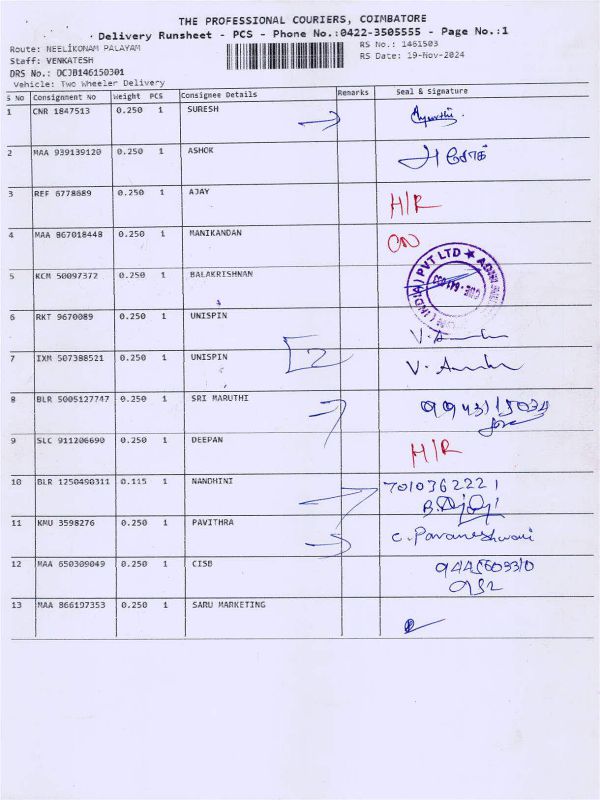 THE PROFESSIONAL COURIERS, COIMBATORE
Delivery Runsheet - PCS - Phone No.:0422-3505555 - Page No.:1
Route: NEELIKONAM PALAYAM RS No.: 1461503
Staff: VENKATESH RS Date: 19-Nov-2024
DRS No.: DCJB146150301
Vehicle: Two Wheeler Delivery
S No Consignment No Weight PCS Consignee Details Remarks Seal & Signature
1 CNR 1847513 0.250 1 SURESH
2 MAA 939139120 0.250 1 ASHOK அசோக்
3 REF 6778689 0.250 1 AJAY H/R
4 MAA 867018448 0.250 1 MANIKANDAN
5 KCM 50097372 0.250 1 BALAKRISHNAN (INDIA) PVT LTD ★
6 RKT 9670089 0.250 1 UNISPIN
7 IXM 507388521 0.250 1 UNISPIN 2
8 BLR 5005127747 0.250 1 SRI MARUTHI
9 SLC 911206690 0.250 1 DEEPAN H/R
10 BLR 1250490311 0.115 1 NANDHINI 7010362221
11 KMU 3598276 0.250 1 PAVITHRA C. Parameshwari
12 MAA 650309049 0.250 1 CISB
13 MAA 866197353 0.250 1 SARU MARKETING